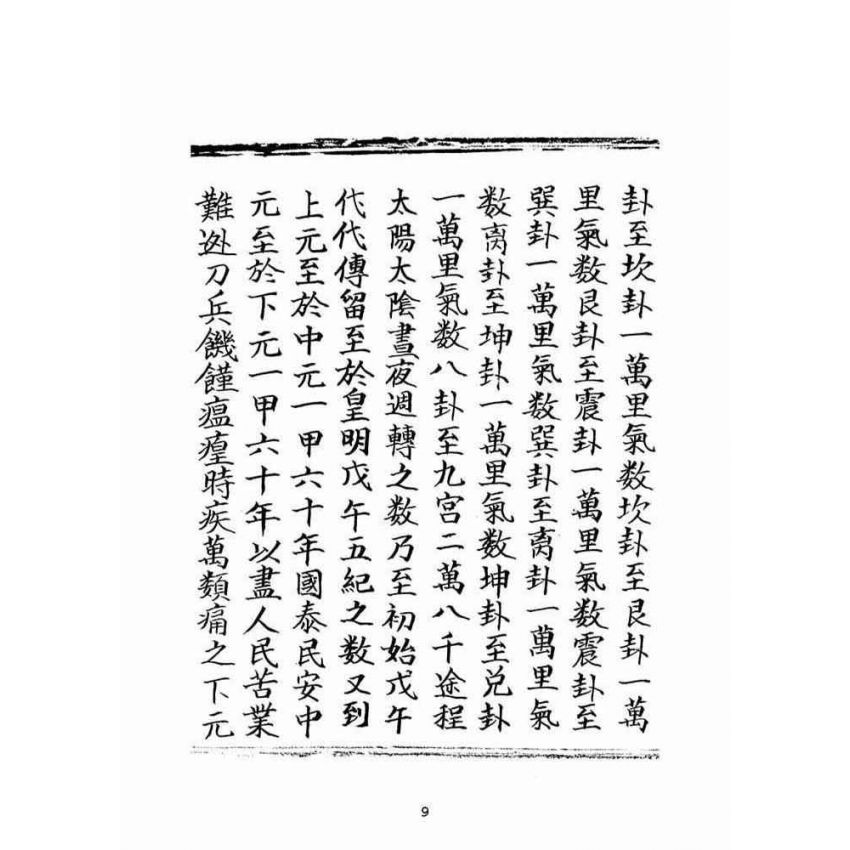 卦至坎卦一萬里氣数坎卦至艮卦一萬
里氣数艮卦至震卦一萬里氣数震卦至
巽卦一萬里氣数巽卦至离卦一萬里氣
数离卦至坤卦一萬里氣数坤卦至兑卦
一萬里氣数八卦至九宫二萬八千途程
太陽太陰晝夜週轉之数乃至初始戊午
代代傳留至於皇明戊午五紀之数又到
上元至於中元一甲六十年國泰民安中
元至於下元一甲六十年以盡人民苦業
難迯刀兵饑饉瘟瘟時疾萬類痛之下元
9